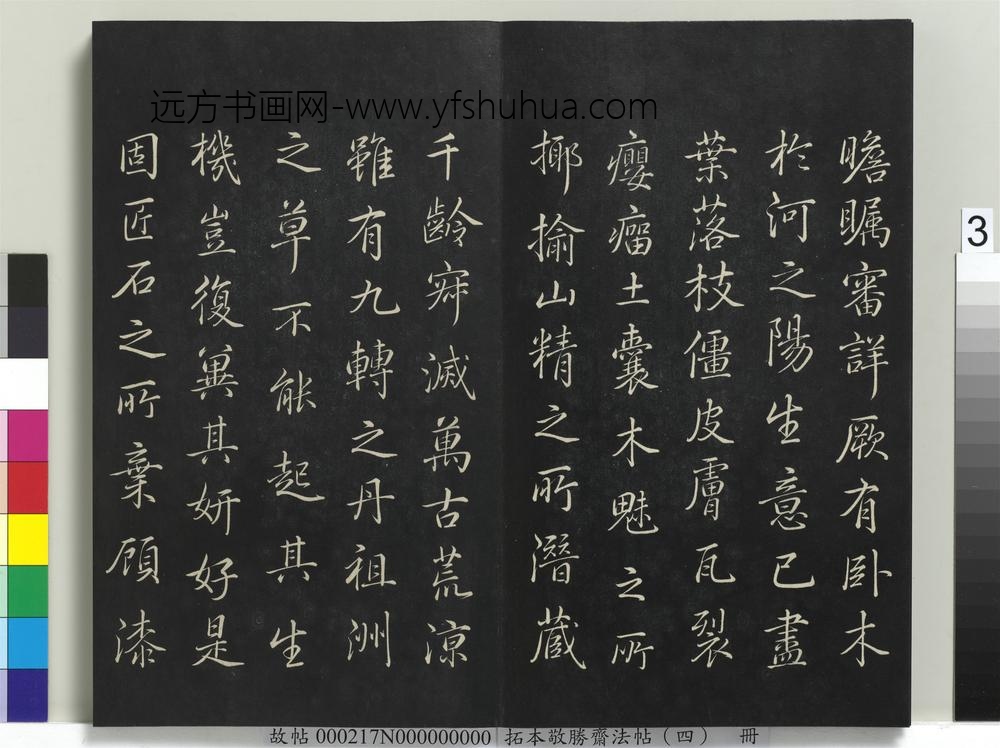 远方书画网-www.yfshuhua.com
瞻矚審詳厥有卧木
於河之陽生意已盡
葉落枝僵皮膚瓦裂
癭瘤土囊木魅之所
揶揄山精之所潛藏
千齡寂滅萬古荒涼
雖有九轉之丹祖洲
之草不能起其生
機豈復冀其妍好是
固匠石之所棄顧漆
3
故帖 000217N000000000 拓本敬勝齋法帖（四） 冊